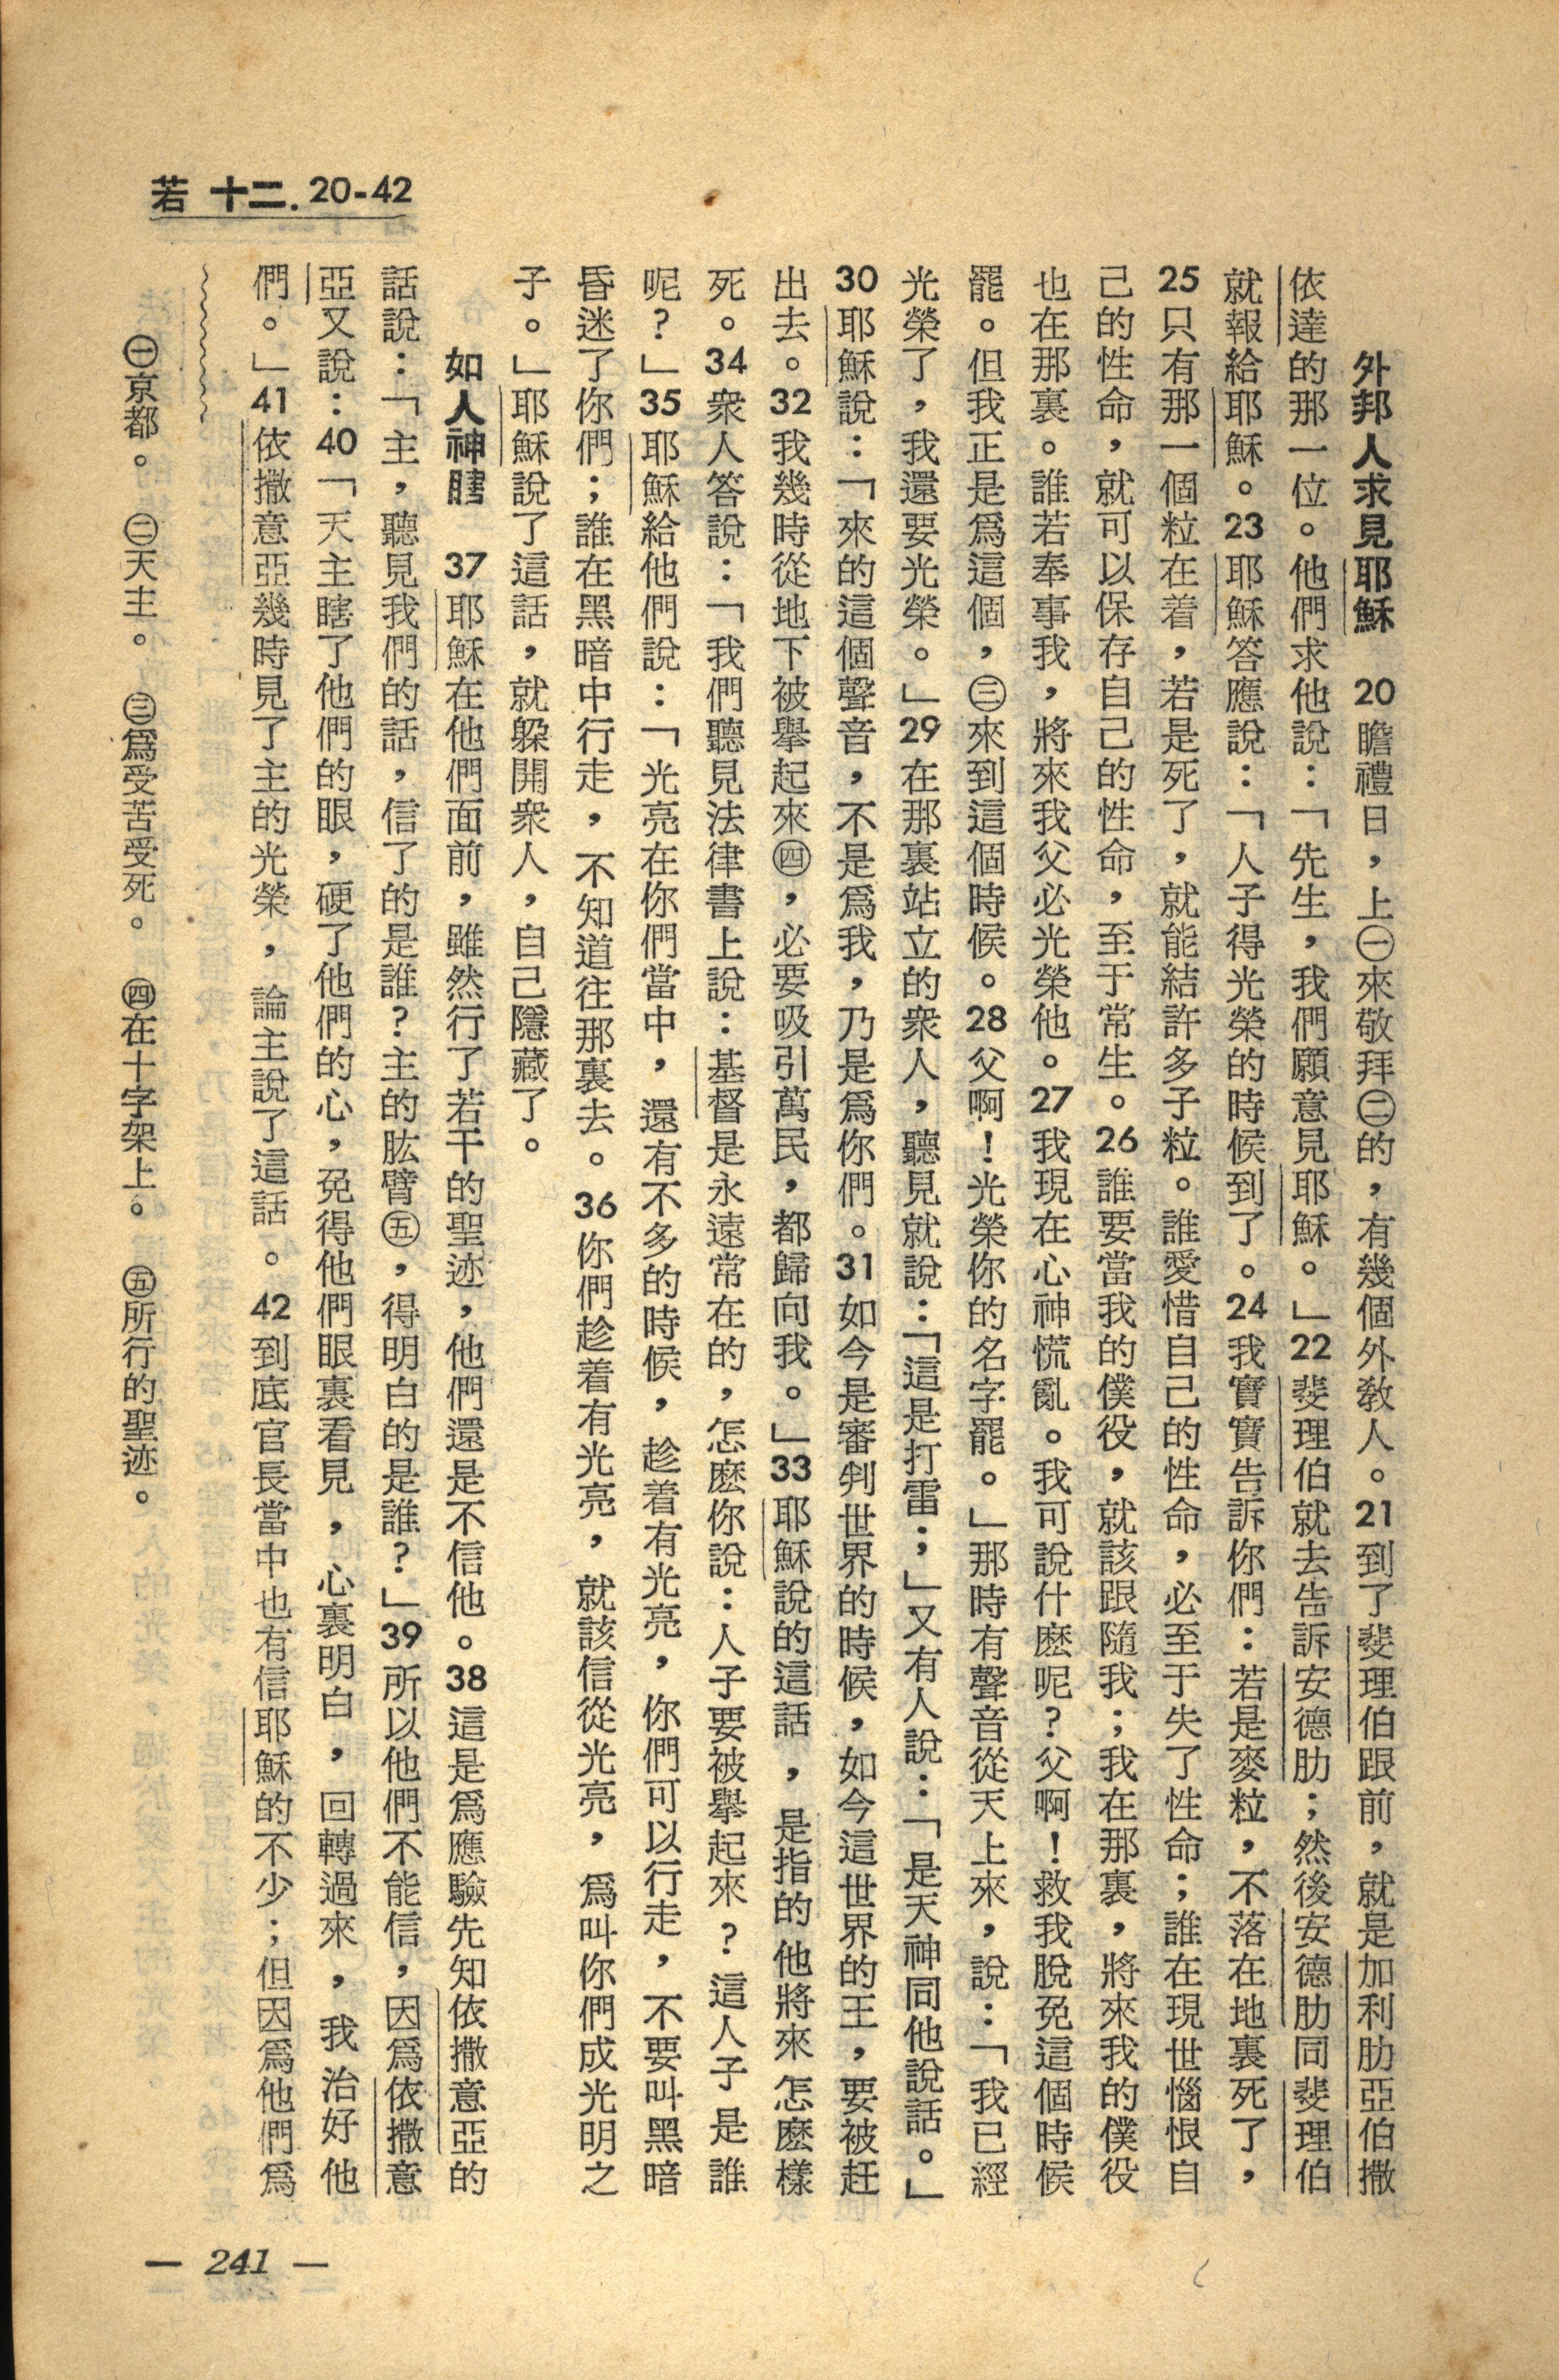 若 十二. 20-42
外邦人求見耶穌　20瞻禮日，上㊀來敬拜㊁的，有幾個外教人。21到了斐理伯跟前，就是加利肋亞伯撒
依達的那一位。他們求他說：「先生，我們願意見耶穌。」22斐理伯就去告訴安德肋；然後安德肋同斐理伯
就報給耶穌。23耶穌答應說：「人子得光榮的時候到了。24我實實告訴你們：若是麥粒，不落在地裏死了，
25只有那一個粒在着，若是死了，就能結許多子粒。誰愛惜自己的性命，必至于失了性命；誰在現世惱恨自
己的性命，就可以保存自己的性命，至于常生。26誰要當我的僕役，就該跟隨我；我在那裏，將來我的僕役
也在那裏。誰若奉事我，將來我父必光榮他。27我現在心神慌亂。我可說什麽呢？父啊！救我脫免這個時候
罷。但我正是爲這個，㊂來到這個時候。28父啊！光榮你的名字罷。」那時有聲音從天上來，說：「我已經
光榮了，我還要光榮。」29在那裏站立的衆人，聽見就說：「這是打雷；」又有人說：「是天神同他說話。」
30耶穌說：「來的這個聲音，不是爲我，乃是爲你們。31如今是審判世界的時候，如今這世界的王，要被赶
出去。32我幾時從地下被舉起來㊃，必要吸引萬民，都歸向我。」33耶穌說的這話，是指的他將來怎麽樣
死。34衆人答說：「我們聽見法律書上說：基督是永遠常在的，怎麽你說：人子要被舉起來？這人子是誰
呢？」35耶穌給他們說：「光亮在你們當中，還有不多的時候，趁着有光亮，你們可以行走，不要叫黑暗
昏迷了你們；誰在黑暗中行走，不知道往那裏去。36你們趁着有光亮，就該信從光亮，爲叫你們成光明之
子。」耶穌說了這話，就躲開衆人，自己隱藏了。
如人神瞎　37耶穌在他們面前，雖然行了若干的聖迹，他們還是不信他。38這是爲應驗先知依撒意亞的
話說：「主，聽見我們的話，信了的是誰？主的肱臂㊄，得明白的是誰？」39所以他們不能信，因爲依撒意
亞又說：40「天主瞎了他們的眼，硬了他們的心，免得他們眼裏看見，心裏明白，回轉過來，我治好他
們。」41依撒意亞幾時見了主的光榮，論主說了這話。42到底官長當中也有信耶穌的不少；但因爲他們爲
㊀京都。　㊁天主。　㊂爲受苦受死。　㊃在十字架上。　㊄所行的聖迹。
— 241 —